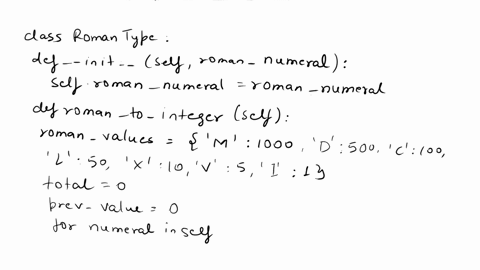 class Roman Type :
def __init__ (self, roman_numeral):
self.roman_numeral = roman_numeral
def roman_to_integer (self):
roman_values = { 'M' : 1000, 'D' : 500, 'C' : 100,
'L' : 50, 'X' : 10, 'V' : 5, 'I' : 1}
total = 0
prev_value = 0
for numeral in self